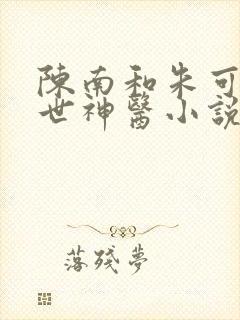 陳南和朱可
世神醫小說
落殘夢